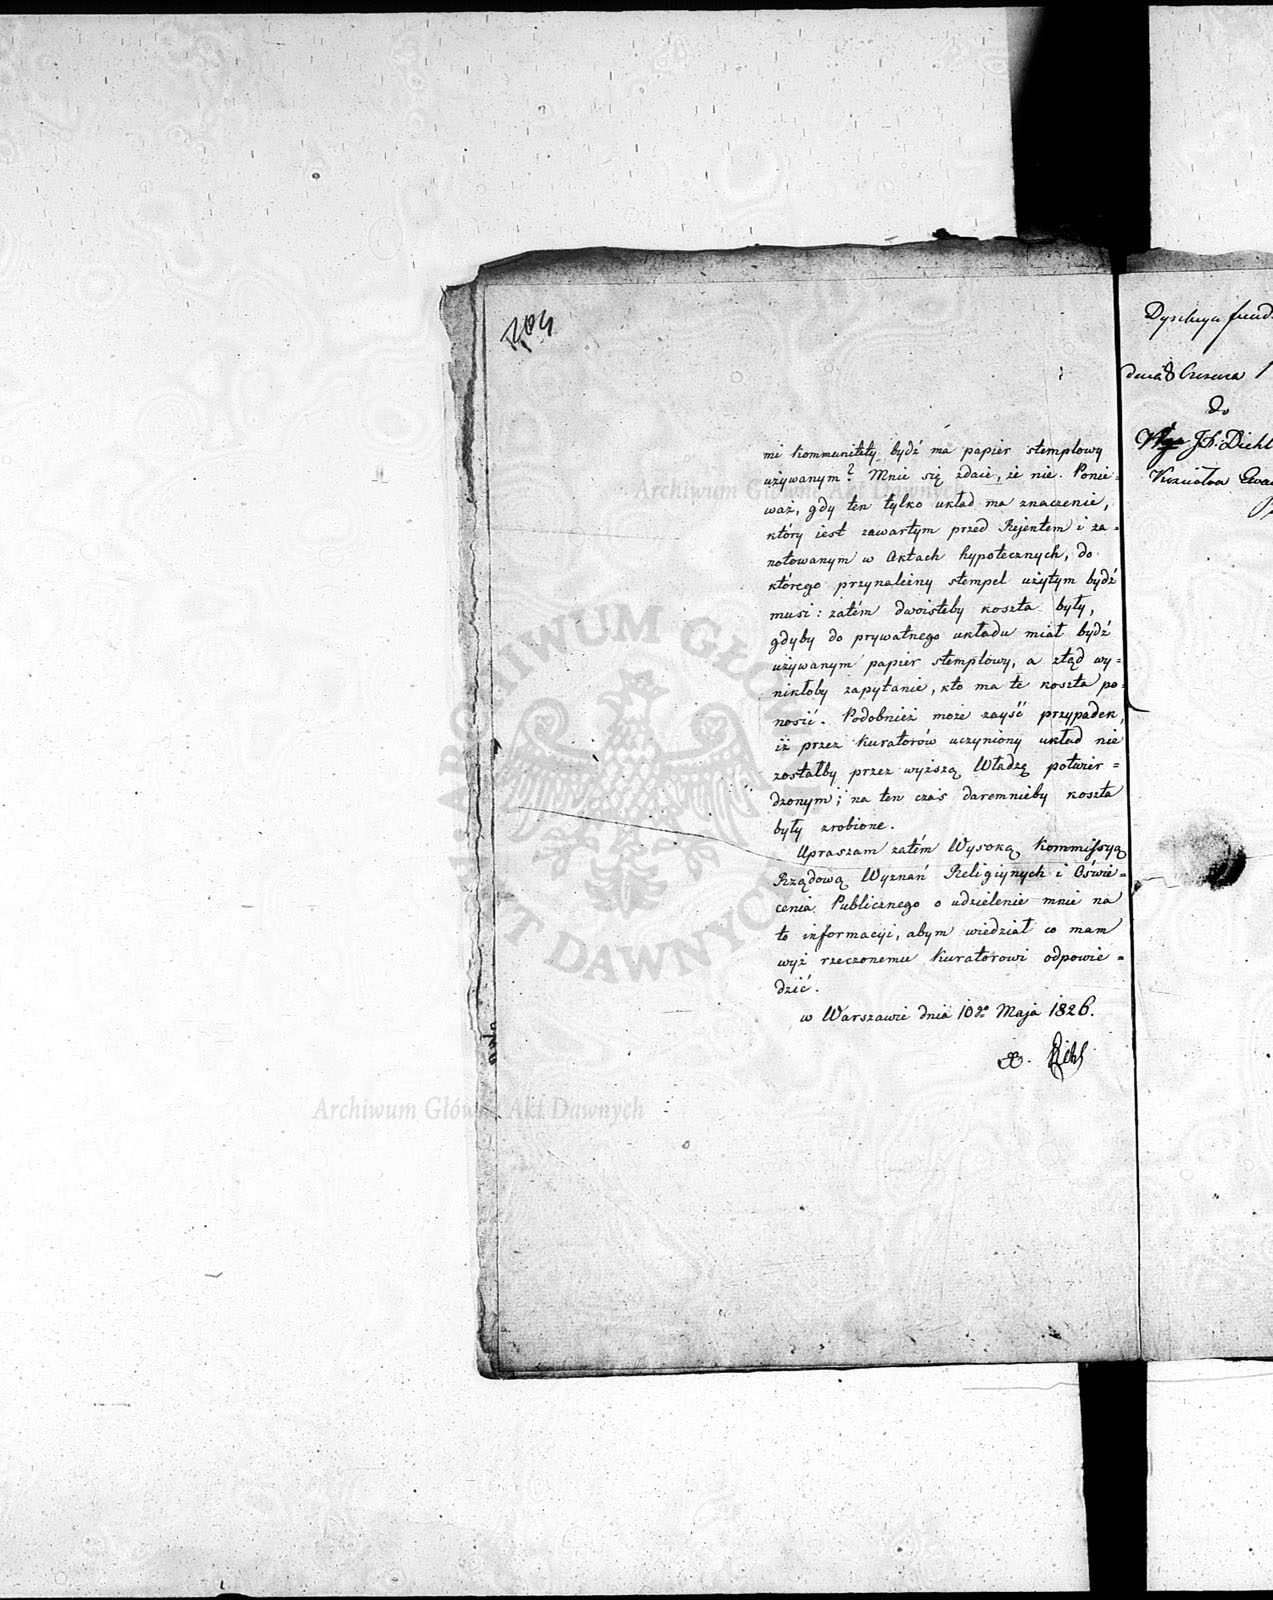 mi kommunitety bydź ma papier stemplowy
używanym? Mnie się zdaie, że nie. Ponie=
waż, gdy ten tylko układ ma znaczenie,
który iest zawartym przed Rejentem i za=
notowanym w Aktach hypotecznych, do
którego przynależny stempel użytym bydź
musi: zatém dwoisteby koszta były,
gdyby do prywatnego układu miał bydź
używanym papier stemplowy, a ztąd wy=
nikłoby zapytanie, kto ma te koszta po=
nosić. Podobnież może zayść przypadek,
iż przez Kuratorów uczyniony układ nie
zostałby przez wyższą Władzę potwier=
dzonym; na ten czas daremnieby koszta
były zrobione.
Upraszam zatém Wysoką Kommissyą
Rządową Wyznań Religiynych i Oświe=
cenia Publicznego o udzielenie mnie na
to informacyi, abym wiedział co mam
wyż rzeczonemu Kuratorowi odpowie=
dzić.
w Warszawie dnia 10go Maja 1826.
Diehl
do
J.X. Diehl
ARCHIWUM GŁÓWNE AKT DAWNYCH
Archiwum Główne Akt Dawnych
Archiwum Główne Akt Dawnych